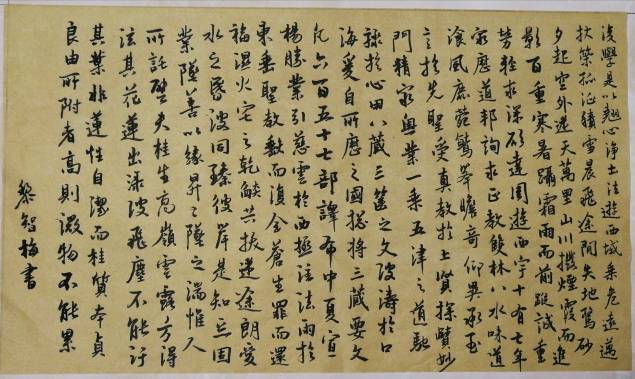 後學是以翹心淨土法遊西域乘危遠邁
杖策孤征積雪晨飛途間失地驚砂
夕起空外迷天萬里山川撥煙霞而進
影百重寒暑躡霜雨而前蹤誠重
勞輕求深願達周遊西宇十有七年
窮歷道邦詢求正教雙林八水味道
飡風鹿菀鷲峯瞻奇仰異承至
言於先聖受真教於上賢探賾妙
門精窮奧業一乘五律之道馳
驟於心田八藏三篋之文波濤於口
海爰自所歷之國揔將三藏要文
凡六百五十七部譯布中夏宣
楊勝業引慈雲於西極注法雨於
東垂聖教缺而復全蒼生罪而還
福濕火宅之乾焰共拔迷途朗愛
水之昏波同臻彼岸是知惡因
業墜善以緣昇昇墜之端惟人
所託譬夫桂生高嶺雲露方得
泫其花蓮出淥波飛塵不能汙
其葉非蓮性自潔而桂質本貞
良由所附者高則微物不能累
黎智梅書